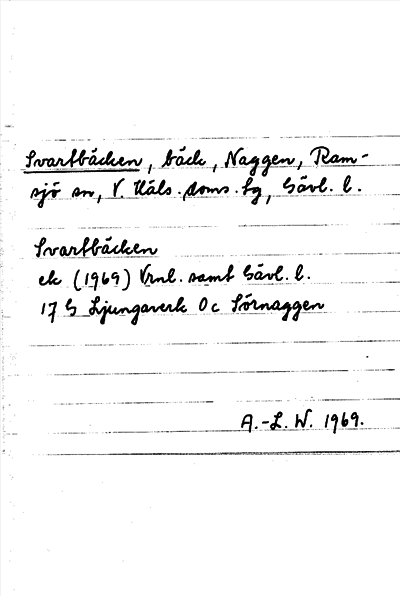 Svartbäcken, bäck, Naggen, Ram-
sjö sn, V. Häls. doms. hg, Gävl. l.
Svartbäcken
ek (1969) Vrnl. samt Gävl. l.
17 G Ljungaverk 0c Sörnaggen
A.-L. W. 1969.